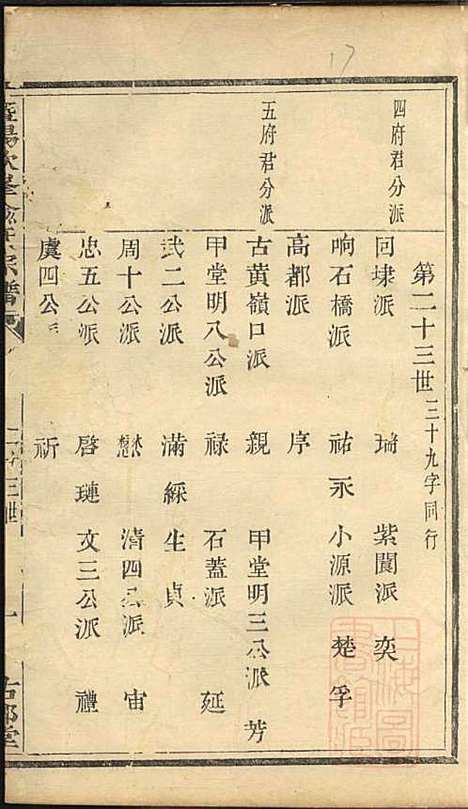 17
第二十三世 三十九字同行
四府君分派
回埭派 瑞 紫閬派 奕
响石橋派 祐永 小源派 楚孚
高都派 序
五府君分派
古黃嶺口派 親 甲堂明三公派 芳
甲堂明八公派 祿 石蓋派 延
武二公派 滿綵生貞
周十公派 懋 清四公派 宙
忠五公派 啓璉 文三公派 禮
虞四公派 祈
宗譜
二十三世